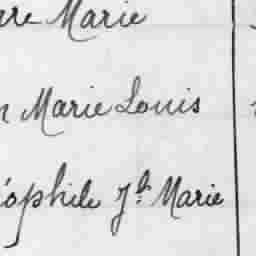 Marie
Marie Louis
éophile Jh. Marie